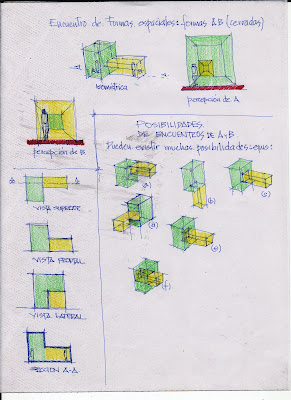 Encuentro de formas espaciales: formas A B (cerradas)
A
A
isométrica
percepción de A
percepción de B
POSIBILIDADES
DE ENCUENTROS DE A+B
Pueden existir muchas posibilidades como:
a)
b)
c)
d)
e)
f)
VISTA SUPERIOR
VISTA FRONTAL
VISTA LATERAL
SECCIÓN A-A